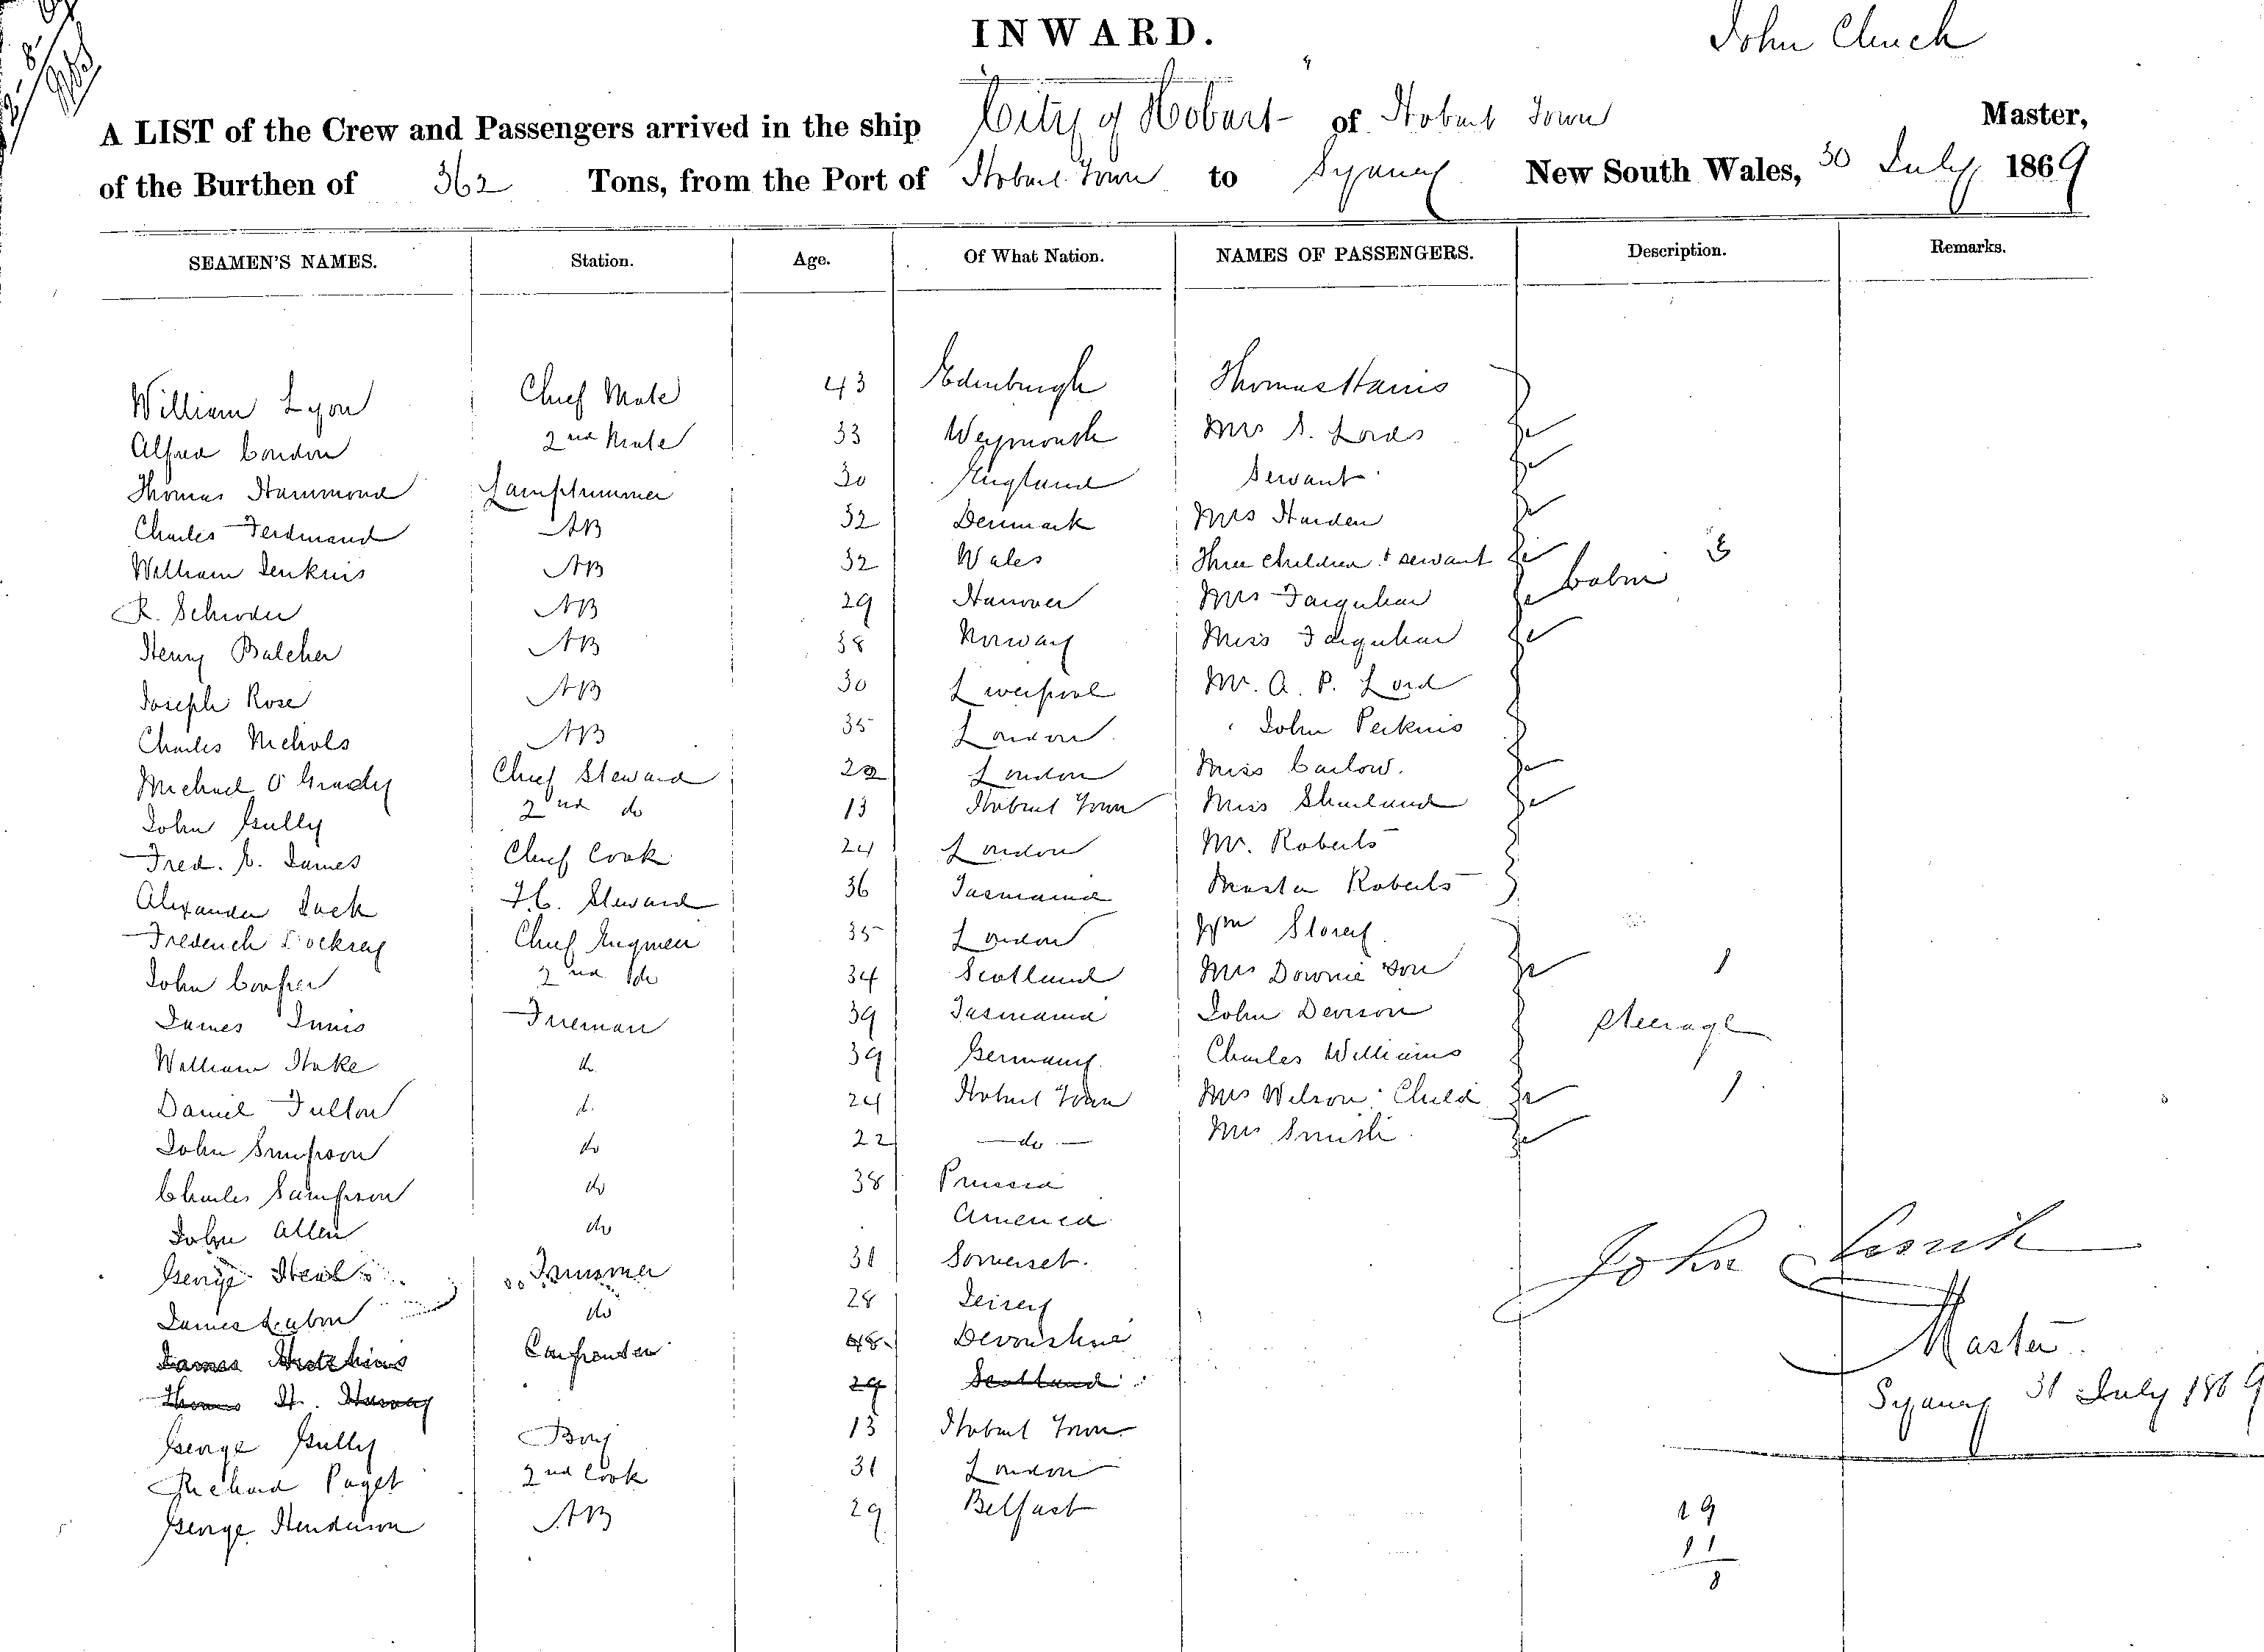 INWARD.
John Clinch
A LIST of the Crew and Passengers arrived in the ship City of Hobart of Hobart Town Master,
of the Burthen of 362 Tons, from the Port of Hobart Town to Sydney New South Wales, 30 July 1869
SEAMEN'S NAMES. Station. Age. Of What Nation. NAMES OF PASSENGERS. Description. Remarks.
William Lyon Chief Mate 43 Edinburgh Thomas Harris
Alfred Condon 2nd Mate 33 Weymouth Mrs S. Lords
Thomas Hammond Lamptrimmer 30 England Servant
Charles Ferdinand AB 32 Denmark Mrs Harden
William Jenkins AB 32 Wales Three children & servant 3
R. Schroder AB 29 Hanover Mrs Farquhar Cabin
Henry Balcher AB 38 Norway Miss Farquhar
Joseph Rose AB 30 Liverpool Mr. A. P. Lord
Charles Nichols AB 35 London John Perkins
Michael O'Grady Chief Steward 22 London Miss Carlow.
John Gully 2nd do 13 Hobart Town Miss Sharland
Fred. C. James Chief Cook 24 London Mr. Roberts
Alexander Jack F.C. Steward 36 Tasmania Master Roberts
Frederick Lockray Chief Engineer 35 London Wm Storey
John Cooper 2nd do 34 Scotland Mrs Downie son 1
James Innis Fireman 39 Tasmania John Devison
Steerage
William Hake do 39 Germany Charles Williams
Daniel Fullon do 24 Hobart Town Mrs Wilson Child 1
John Simpson do 22 do Mrs Smith
Charles Sampson do 38 Prussia
John Allen do America
George Steel Trimmer 31 Somerset.
James do 28 Jersey
James Hutchins Carpenter 48 Devonshire
Thomas H. Harvey 29 Scotland
George Gully Boy 13 Hobart Town
Richard Paget 2nd Cook 31 London
George Henderson AB 29 Belfast
John Clinch
Master.
Sydney 31 July 1869
19
11
8